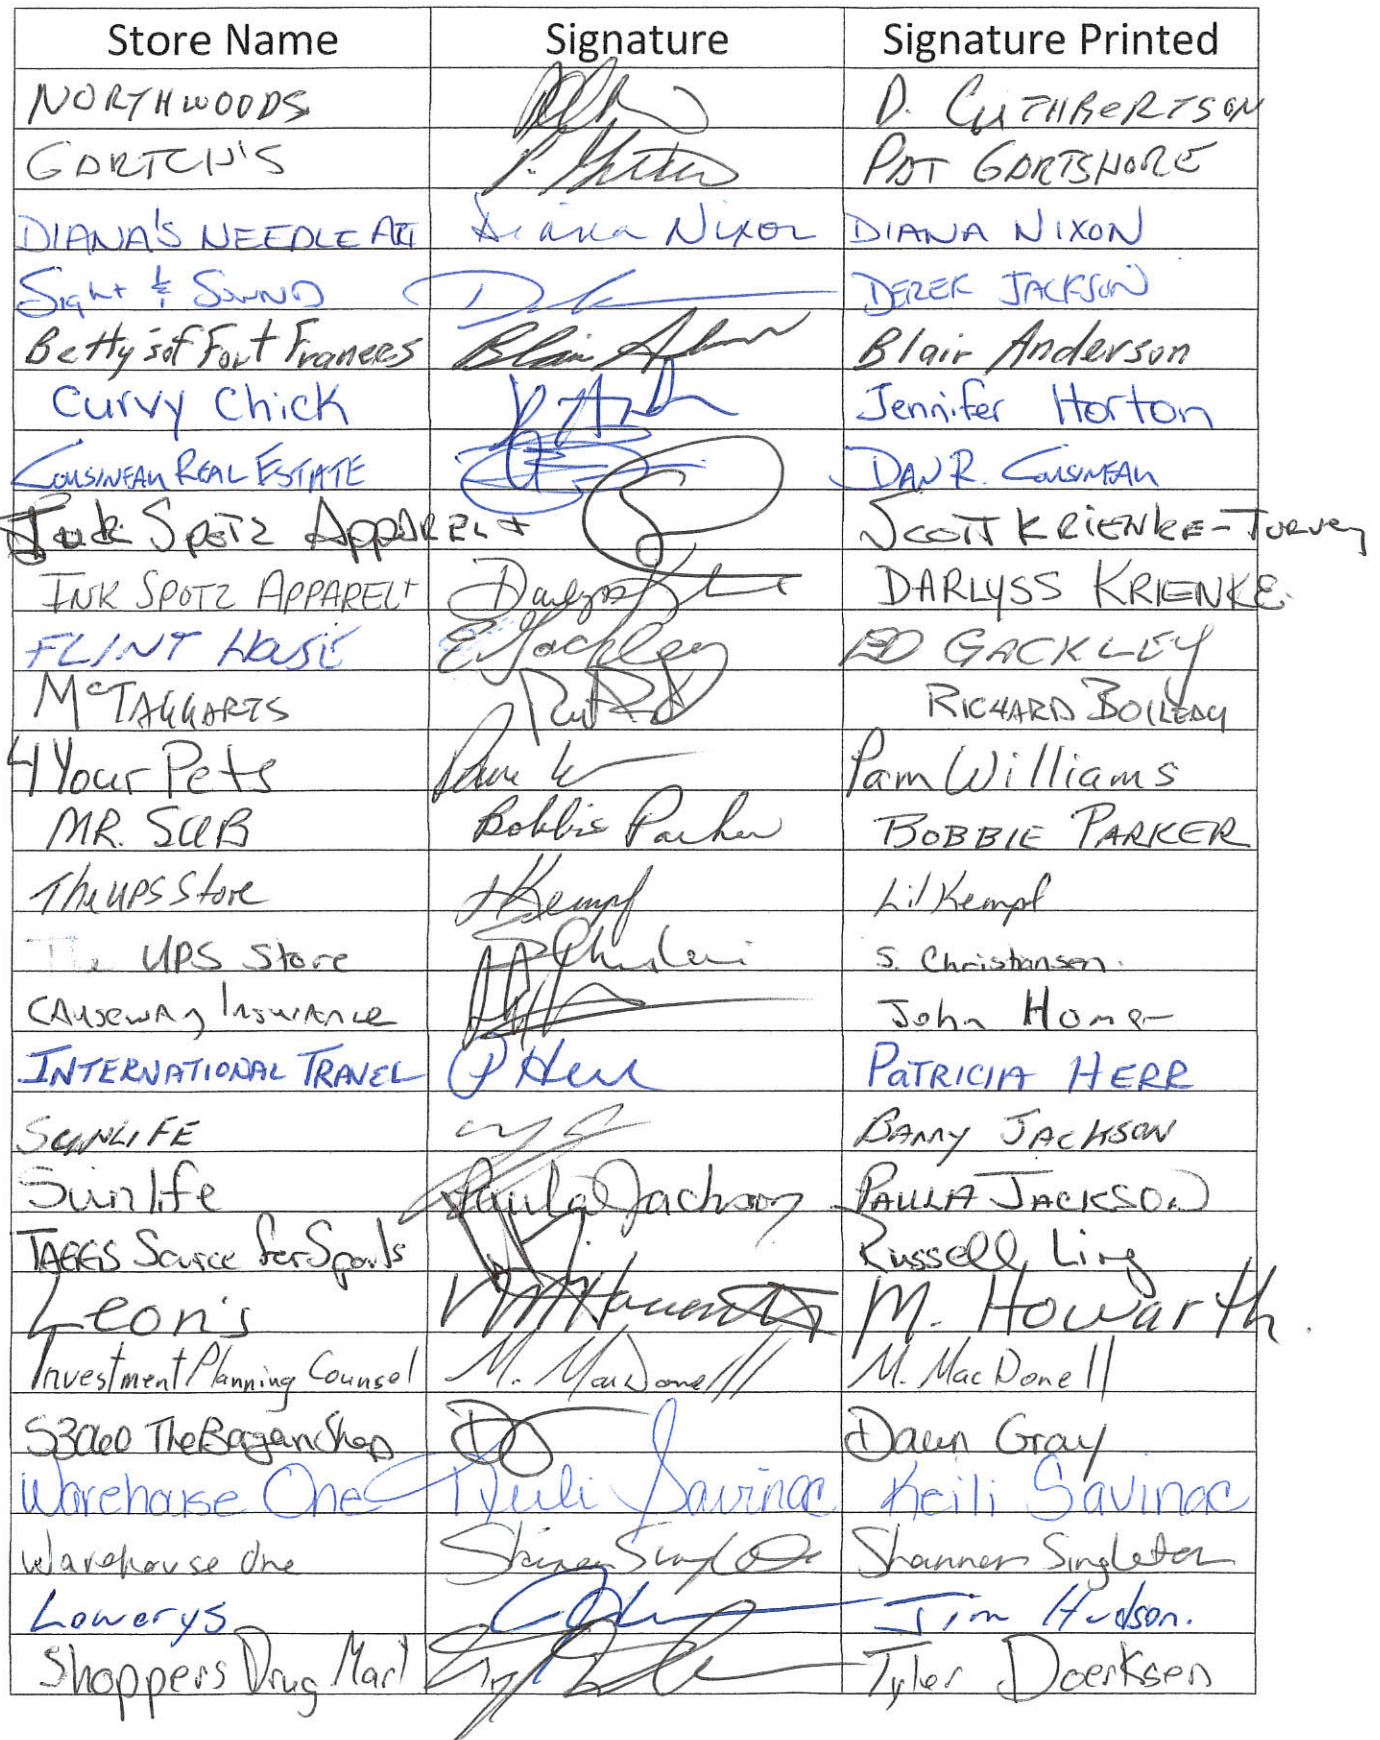 Store Name Signature Signature Printed
NORTHWOODS D. CUTHBERTSON
GORTCH'S P. PAT GORTSHORE
DIANA'S NEEDLE ART Diana Nixon DIANA NIXON
Sight & Sound DEREK JACKSON
Betty's of Fort Frances Blair Anderson Blair Anderson
Curvy Chick Jennifer Horton
COUSINEAU REAL ESTATE DAN R. COUSINEAU
Ink Spotz Apparel + SCOTT KRIENKE-TURVEY
INK SPOTZ APPAREL+ Darlyss DARLYSS KRIENKE
FLINT HOUSE E Gackley ED GACKLEY
McTAGGARTS RICHARD BOILEAU
4 Your Pets Pam W Pam Williams
MR. SUB Bobbie Parker BOBBIE PARKER
The UPS Store L Kempf Lil Kempf
The UPS Store S. Christiansen.
CAUSEWAY INSURANCE John Homer
INTERNATIONAL TRAVEL P Herr PATRICIA HERR
SUNLIFE BARRY JACKSON
Sunlife Paula Jackson PAULA JACKSON
TAGGS Source for Sports Russell Ling
Leon's M Howarth M. Howarth.
Investment Planning Counsel M. MacDonell M. MacDonell
The Bargain Shop DG Dawn Gray
Warehouse One Keili Savinac Keili Savinac
Warehouse One Shannon Singleton Shannon Singleton
Lowerys Jim Hudson.
Shoppers Drug Mart Tyler Doerksen